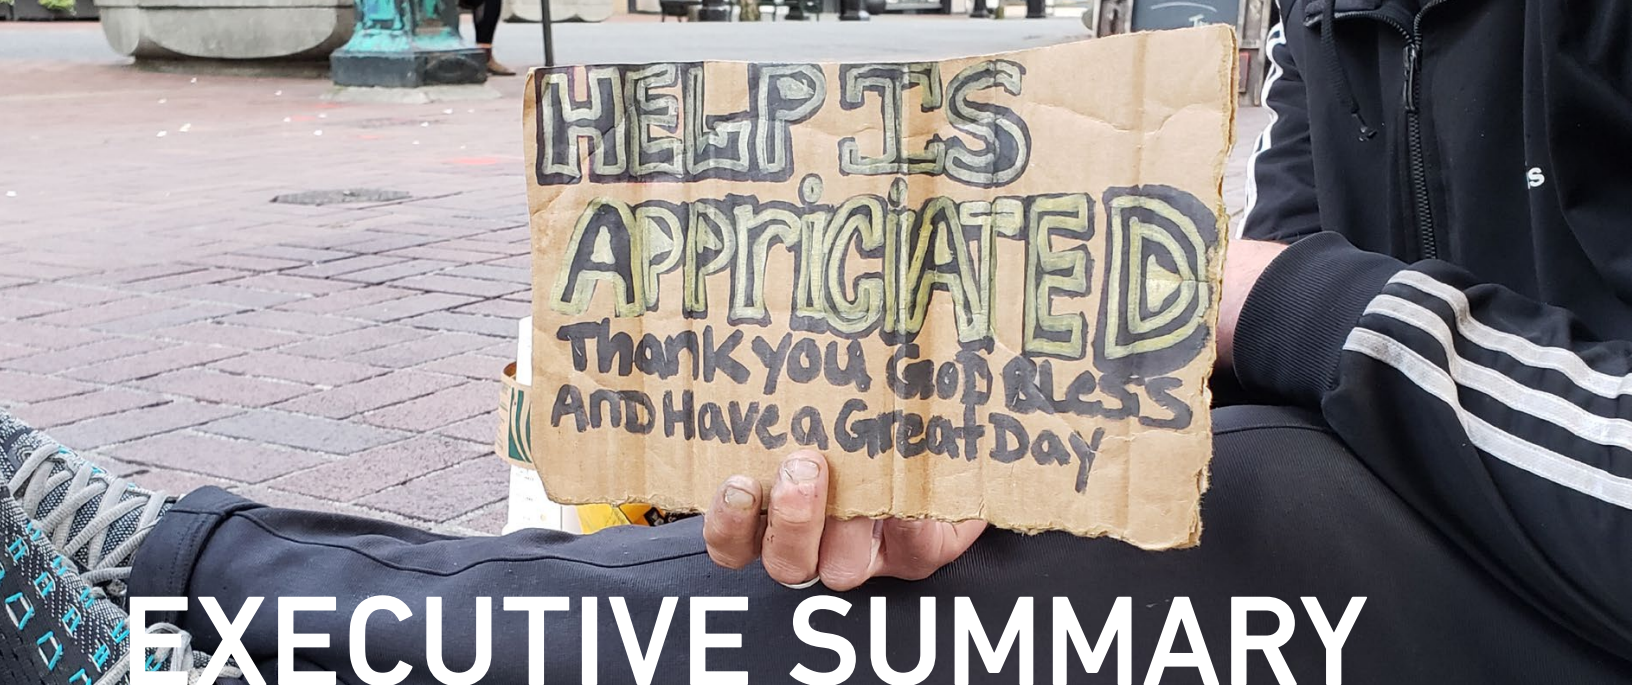 HELP IS
APPriCiATED
Thank you GOD BLess
AnD Have a Great Day
EXECUTIVE SUMMARY